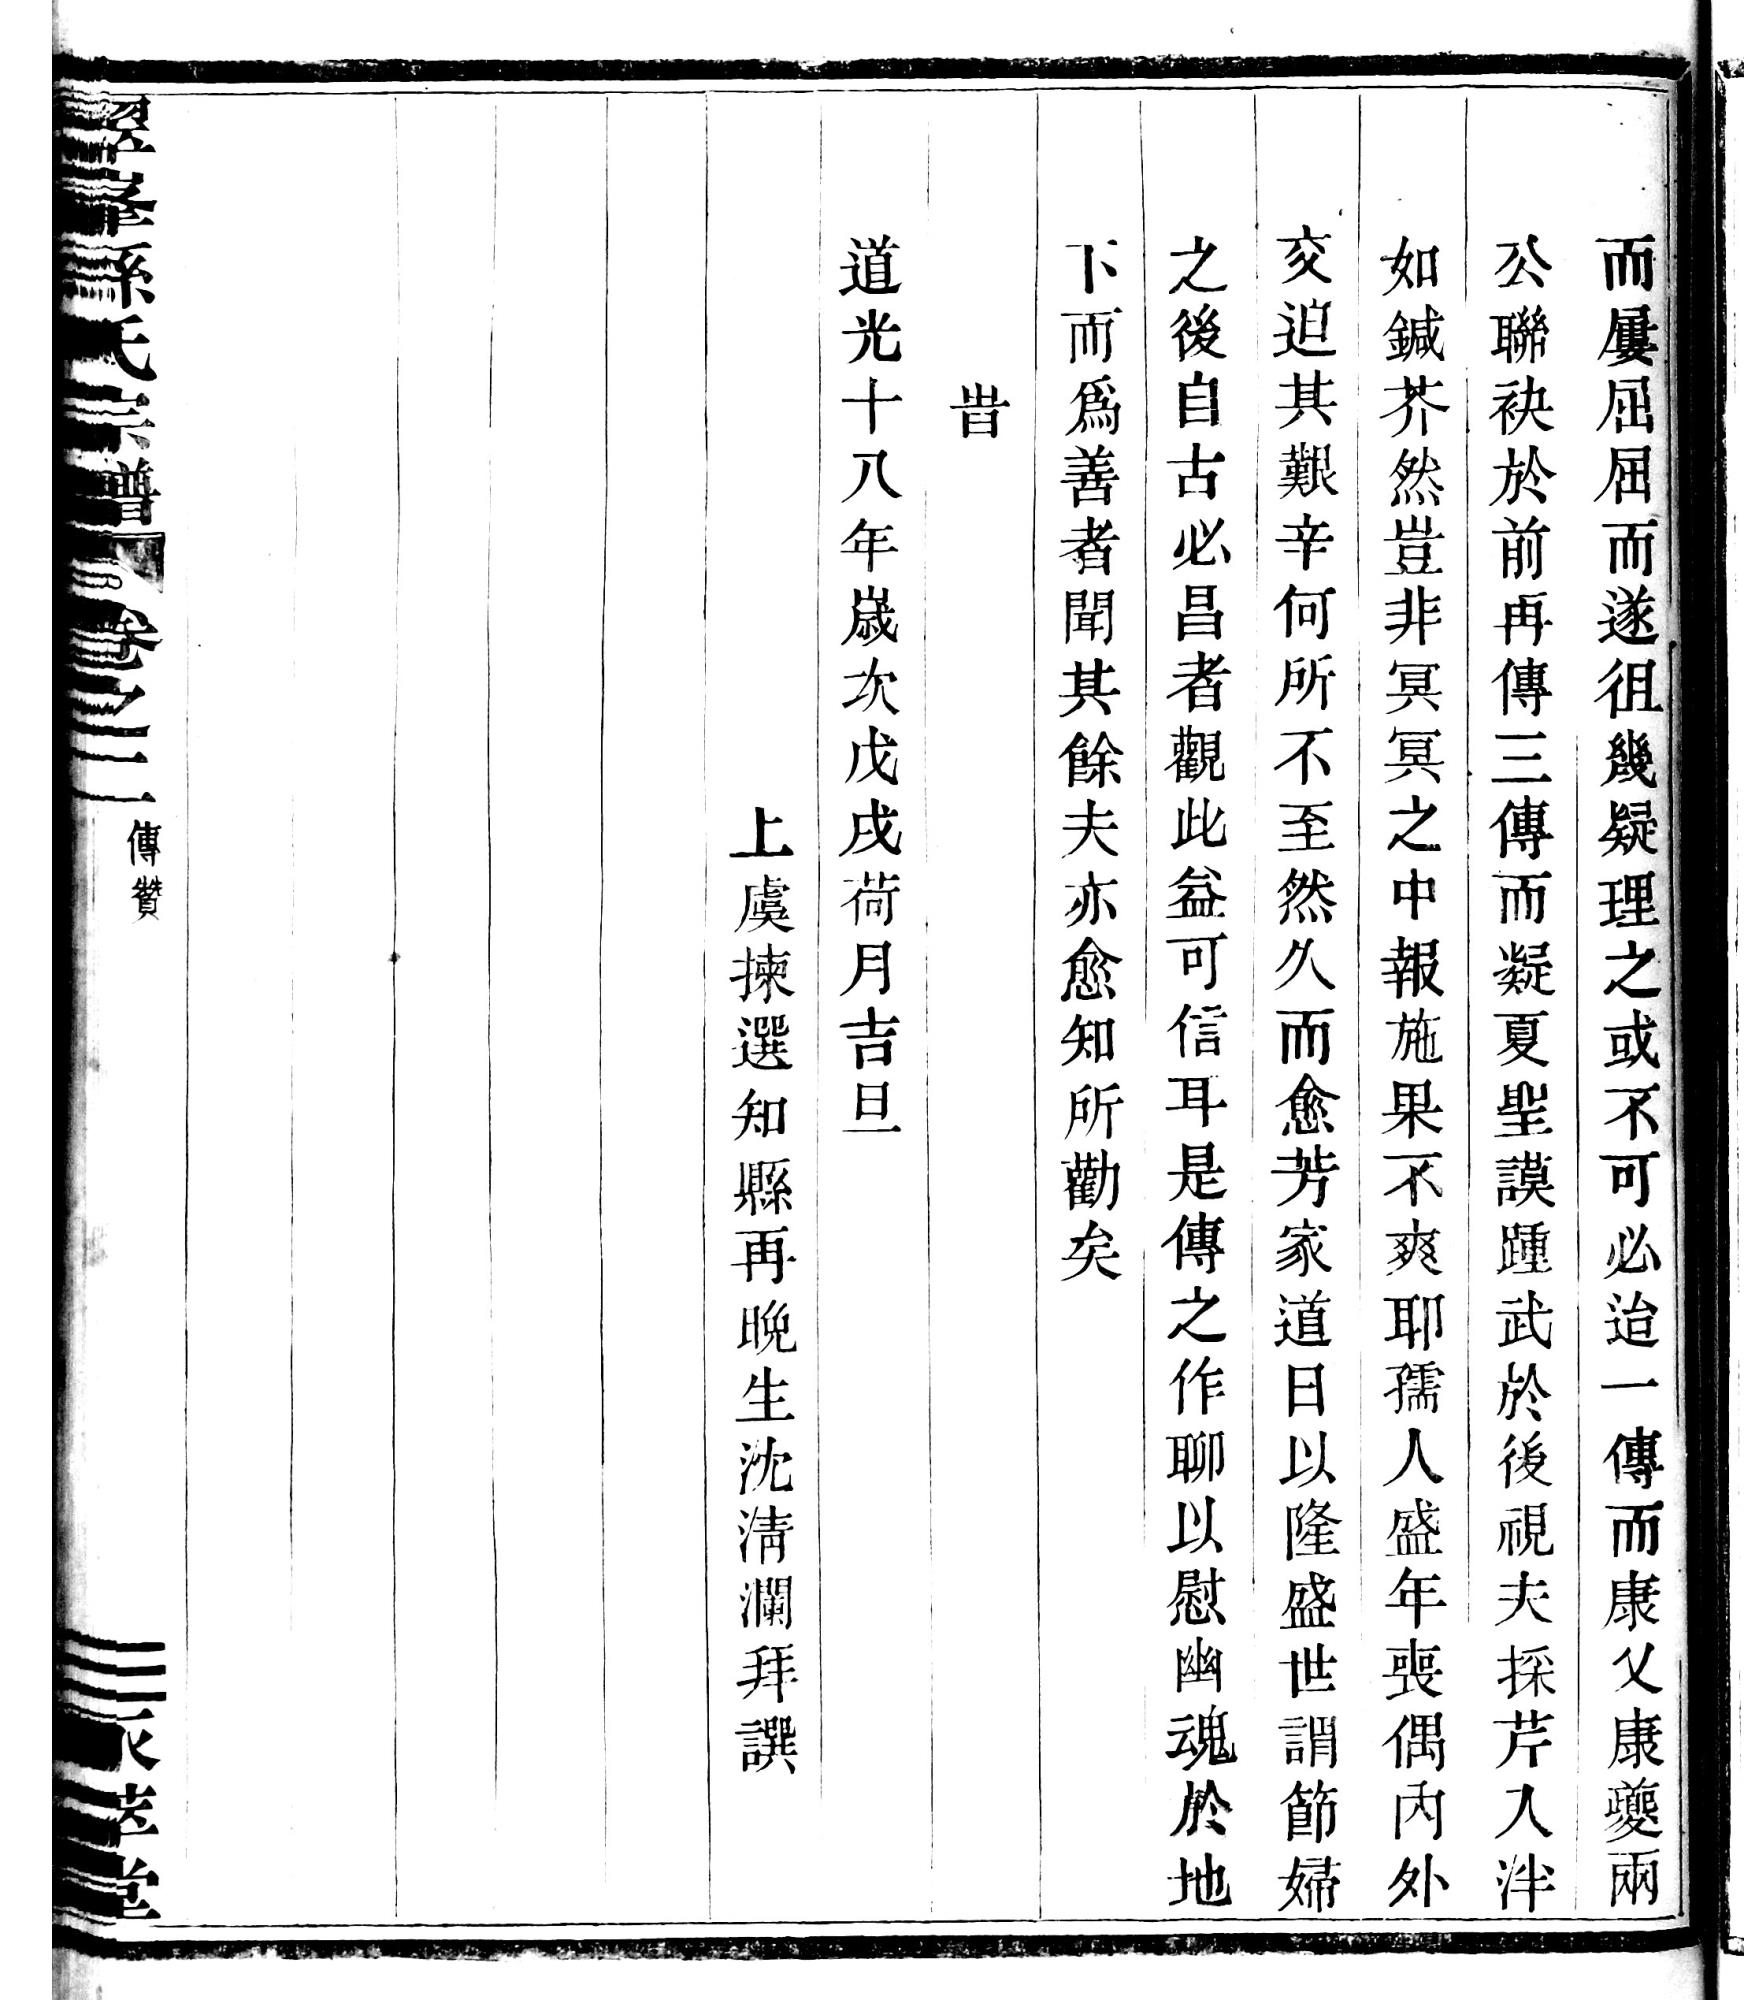 而屢屈屈而遂徂幾疑理之或不可必迨一傳而康乂康夔兩
公聯袂於前再傳三傳而凝夏聖謨踵武於後視夫採芹入泮
如鍼芥然豈非冥冥之中報施果不爽耶孺人盛年喪偶內外
交迫其艱辛何所不至然久而愈芳家道日以隆盛世謂節婦
之後自古必昌者觀此益可信耳是傳之作聊以慰幽魂於地
下而爲善者聞其餘夫亦愈知所勸矣
旹
道光十八年歲次戊戌荷月吉旦
上虞揀選知縣再晚生沈淸瀾拜譔
峯孫氏宗譜 卷之二 傳贊 萃堂